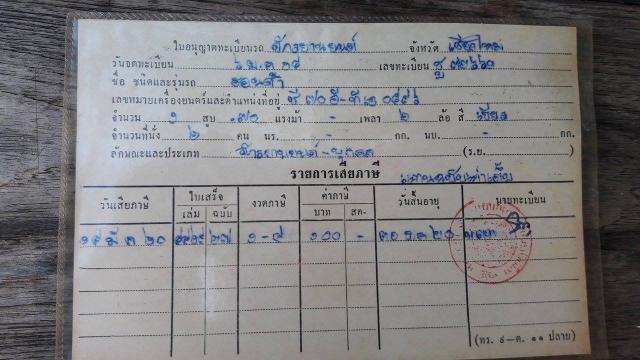 ใบอนุญาตทะเบียนรถ จักรยานยนต์ จังหวัด เชียงใหม่
วันจดทะเบียน ๖ ม.ค. ๑๕ เลขทะเบียน
ชื่อ ชนิดและรุ่นรถ ฮอนด้า
เลขหมายเครื่องยนต์และตำแหน่งที่อยู่ ซี ๗๐ อี-
จำนวน ๑ สูบ ๗๐ แรงม้า - เพลา ๒ ล้อ สี เขียว
จำนวนที่นั่ง ๒ คน นร. - กก. นบ. - กก.
ลักษณะและประเภท จักรยานยนต์-บุคคล (ร.ย. )
รายการเสียภาษี
วันเสียภาษี ใบเสร็จ เล่ม ฉบับ งวดภาษี ค่าภาษี บาท สต. วันสิ้นอายุ นายทะเบียน
๑๔ มี.ค ๒๐ ๒๗ ๑-๔ ๑๐๐ - ๓๐ ธ.ค. ๒๐
(ทร. ๙-ต. ๑๑ ปลาย)